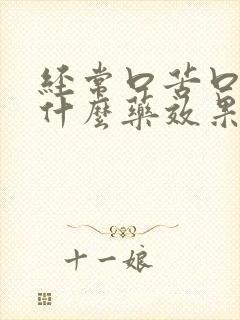 经常口苦口
什麼藥效果
十一娘